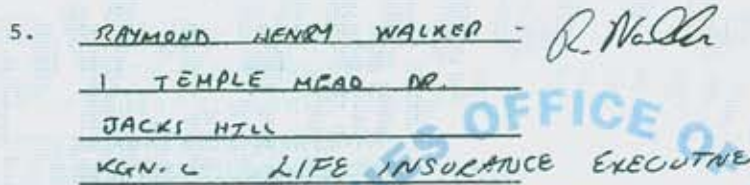 5. RAYMOND HENRY WALKER - R. Walker
1 TEMPLE MEAD DR.
JACKS HILL
KGN. 6 LIFE INSURANCE EXECUTIVE
ES OFFICE OF